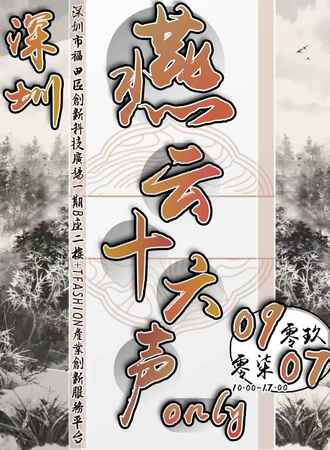 深圳
燕云十六声
only
深圳市福田區創新科技廣場一期B座二樓+TFASHION產業創新服務平台
09
零玖
零柒
07
10:00-17:00